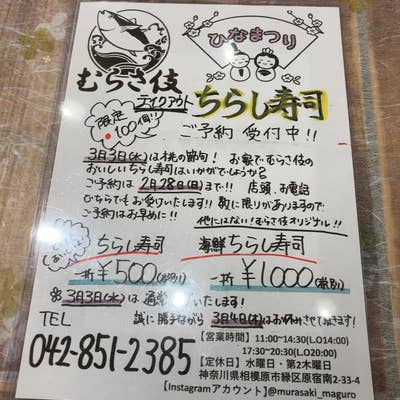 ひなまつり
むらさ伎
テイクアウト
ちらし寿司
限定
100個!!
ご予約 受付中!!
3月3日(水)は桃の節句! お家でむらさ伎の
おいしいちらし寿司はいかがでしょうか?
ご予約は 2月28日(日)まで!! 店頭、お電話
どちらでもお受けいたします! 数に限りがありますので
ご予約はお早めに!!
他にはない!むらさ伎オリジナル!!
ちらし寿司
一折 ¥500(税別)
海鮮ちらし寿司
一折 ¥1000(税別)
3月3日(水)は通常
いたします!
誠に勝手ながら 3月4日(木)はお休みさせて頂きます!
TEL
042-851-2385
【営業時間】11:00~14:30(L.O14:00)
17:30~20:30(L.O20:00)
【定休日】水曜日・第2木曜日
神奈川県相模原市緑区原宿南2-33-4
【Instagramアカウント】@murasaki_maguro